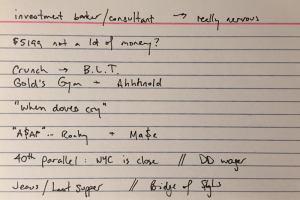 investment banker/consultant → really nervous
$5199 not a lot of money?
Crunch → B.L.T.
Gold's Gym + Ahhhnold
"When doves cry"
"A$AP"... Rocky + Ma$e
40th parallel: NYC is close // DD wager
Jesus/Last Supper // Bridge of Sighs